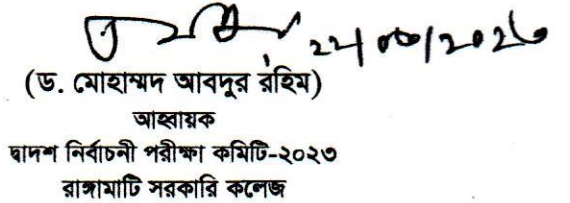 ২২/০৬/২০২৩
(ড. মোহাম্মদ আবদুর রহিম)
আহবায়ক
দ্বাদশ নির্বাচনী পরীক্ষা কমিটি-২০২৩
রাঙ্গামাটি সরকারি কলেজ